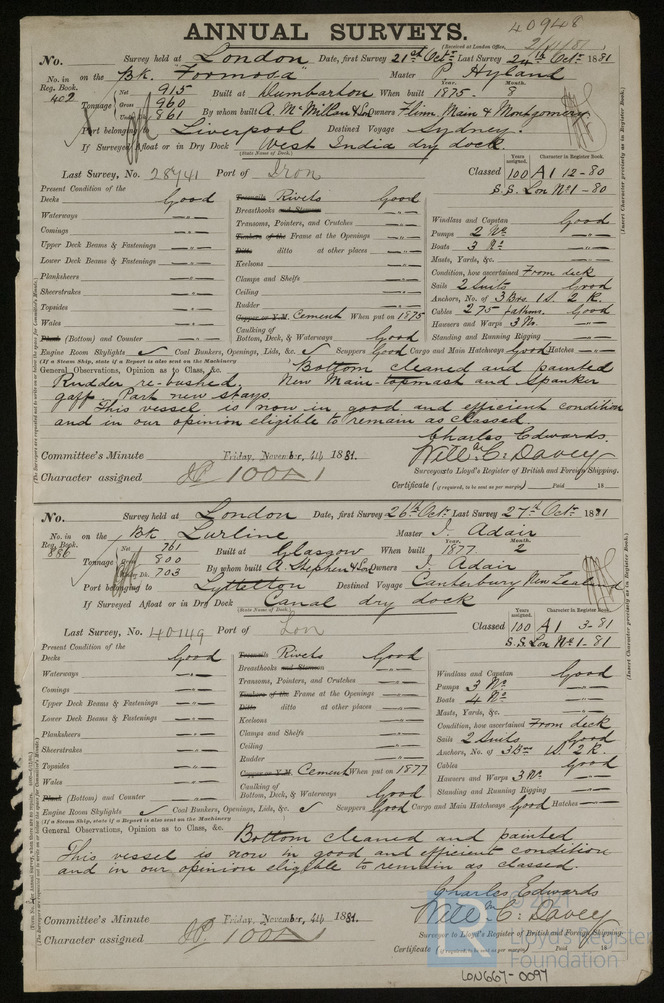 409408
ANNUAL SURVEYS.
(Received at London Office,
No. Survey held at London Date, first Survey 21st Octr Last Survey 24th Octr 1881
No. in Reg. Book. 402 on the Bk. "Formosa" Master P Hyland
Tonnage Net 915 Gross 960 861 Built at Dumbarton When built Year. 1875. Month. 8
By whom built A. McMillan & Son Owners Flinn, Main & Montgomery
Port belonging to Liverpool Destined Voyage Sydney.
If Surveyed Afloat or in Dry Dock West India dry dock.
(State Name of Dock.)
Years assigned. Character in Register Book.
Last Survey, No. 28741 Port of Iron Classed 100 A1 12-80
S.S. Lon No 1-80
Present Condition of the
Decks Good
Waterways "
Comings "
Upper Deck Beams & Fastenings "
Lower Deck Beams & Fastenings "
Planksheers "
Sheerstrakes "
Topsides "
Wales "
Plank (Bottom) and Counter "
Treenails Rivets Good
Breasthooks and Stemson "
Transoms, Pointers, and Crutches "
Timbers of the Frame at the Openings "
Ditto ditto at other places "
Keelsons "
Clamps and Shelfs "
Ceiling "
Rudder "
Copper or Y.M. Cement When put on 1875
Caulking of Bottom, Deck, & Waterways Good
Windlass and Capstan Good
Pumps 2 No "
Boats 3 No "
Masts, Yards, &c. "
Condition, how ascertained From deck
Sails 2 Suits Good
Anchors, No. of 3 Brs. 1 S. 2 K.
Cables 275 fathms. Good
Hawsers and Warps 3 No. "
Standing and Running Rigging "
Engine Room Skylights ✓ Coal Bunkers, Openings, Lids, &c. ✓ Scuppers Good Cargo and Main Hatchways Good Hatches "
(If a Steam Ship, state if a Report is also sent on the Machinery
General Observations, Opinion as to Class, &c. Bottom cleaned and painted
Rudder re-bushed. New Main-topmast and Spanker
gaff. Part new stays.
This vessel is now in good and efficient condition
and in our opinion eligible to remain as classed.
Charles Edwards.
Committee's Minute Friday, November, 4th 1881. Will. C. Davey
Surveyors to Lloyd's Register of British and Foreign Shipping.
Character assigned 100A1
Certificate (if required, to be sent as per margin) Paid 18
No. Survey held at London Date, first Survey 26th Oct. Last Survey 27th Oct 1881
No. in Reg. Book. 886 on the Bk. Lurline Master J. Adair
Tonnage Net 761 Gross 800 Under Dk. 703 Built at Glasgow When built Year. 1877 Month. 2
By whom built A. Stephen & Son Owners J. Adair
Port belonging to Lyttelton Destined Voyage Canterbury New Zealand
If Surveyed Afloat or in Dry Dock Canal dry dock
(State Name of Dock.)
Years assigned. Character in Register Book.
Last Survey, No. 40149 Port of Lon Classed 100 A1 3-81
S.S. Lon No 1-81
Present Condition of the
Decks Good
Waterways "
Comings "
Upper Deck Beams & Fastenings "
Lower Deck Beams & Fastenings "
Planksheers "
Sheerstrakes "
Topsides "
Wales "
Plank (Bottom) and Counter "
Treenails Rivets Good
Breasthooks and Stemson "
Transoms, Pointers, and Crutches "
Timbers of the Frame at the Openings "
Ditto ditto at other places "
Keelsons "
Clamps and Shelfs "
Ceiling "
Rudder "
Copper or Y.M. Cement When put on 1877
Caulking of Bottom, Deck, & Waterways Good
Windlass and Capstan Good
Pumps 3 No "
Boats 4 No "
Masts, Yards, &c. "
Condition, how ascertained From deck
Sails 2 Suits Good
Anchors, No. of 3 Br 1 S. 2 K.
Cables Good
Hawsers and Warps 3 No "
Standing and Running Rigging "
Engine Room Skylights ✓ Coal Bunkers, Openings, Lids, &c. ✓ Scuppers Good Cargo and Main Hatchways Good Hatches "
(If a Steam Ship, state if a Report is also sent on the Machinery
General Observations, Opinion as to Class, &c. Bottom cleaned and painted
This vessel is now in good and efficient condition
and in our opinion eligible to remain as classed.
Charles Edwards
Committee's Minute Friday, November, 4th 1881. Will. C. Davey
Surveyor to Lloyd's Register of British and Foreign Shipping.
Character assigned 100A1
Certificate (if required, to be sent as per margin) Paid 18
LON667-0097
(Insert Character precisely as in Register Book.)
(Insert Character precisely as in Register Book.)
© 2021
LR
Lloyd's Register
Foundation